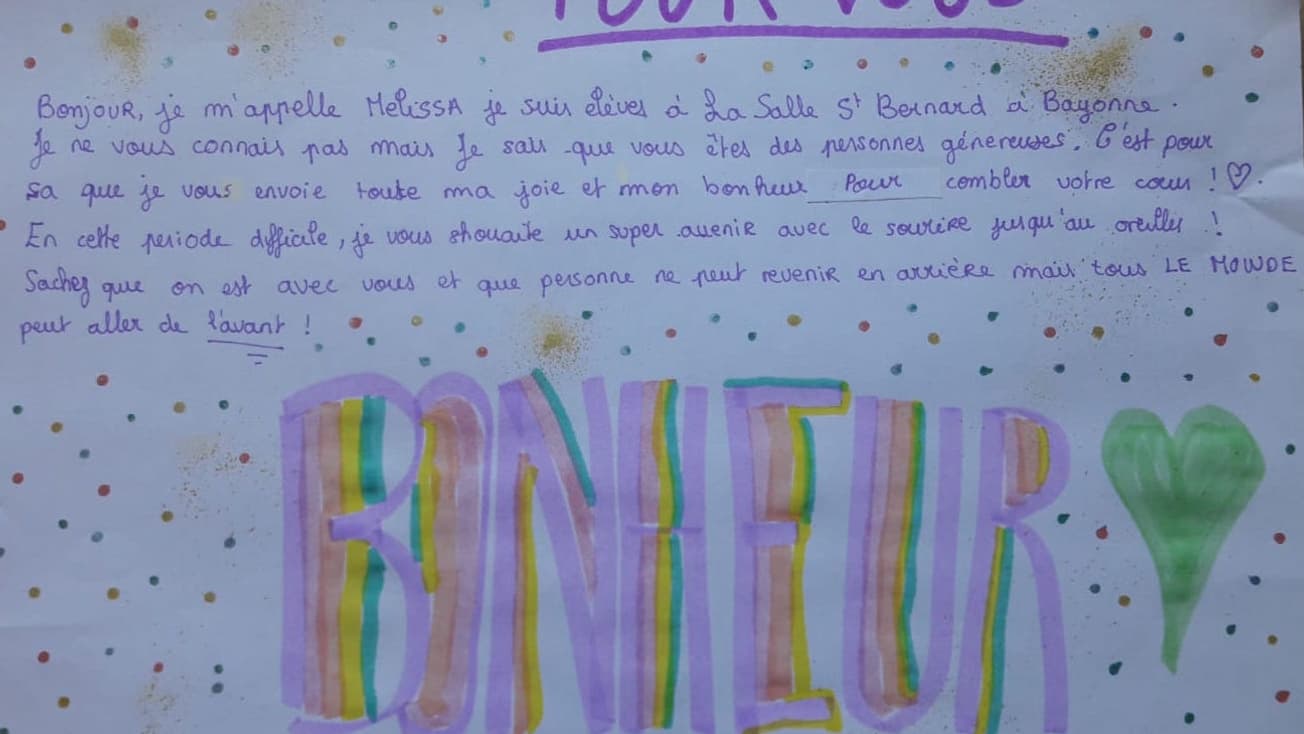 POUR VOUS
Bonjour, je m'appelle MélissA je suis élèves à La Salle St Bernard à Bayonne.
Je ne vous connais pas mais Je sais que vous êtes des personnes génereuses. C'est pour
sa que je vous envoie toute ma joie et mon bonheur Pour combler votre cœur ! ♡.
En cette periode difficile, je vous shouaite un super avenir avec le sourire jusqu'au oreilles !
Sachez que on est avec vous et que personne ne peut revenir en arrière mais tous LE MONDE
peut aller de l'avant !
BONHEUR